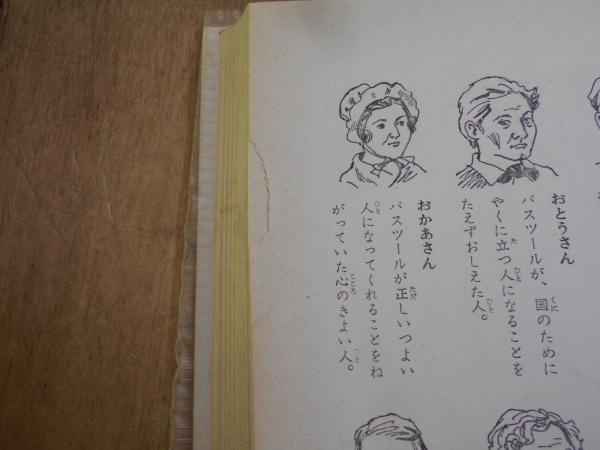 おとうさん
パスツールが、国のために
やくに立つ人になることを
たえずおしえた人。
おかあさん
パスツールが正しいつよい
人になってくれることをね
がっていた心のきよい人。